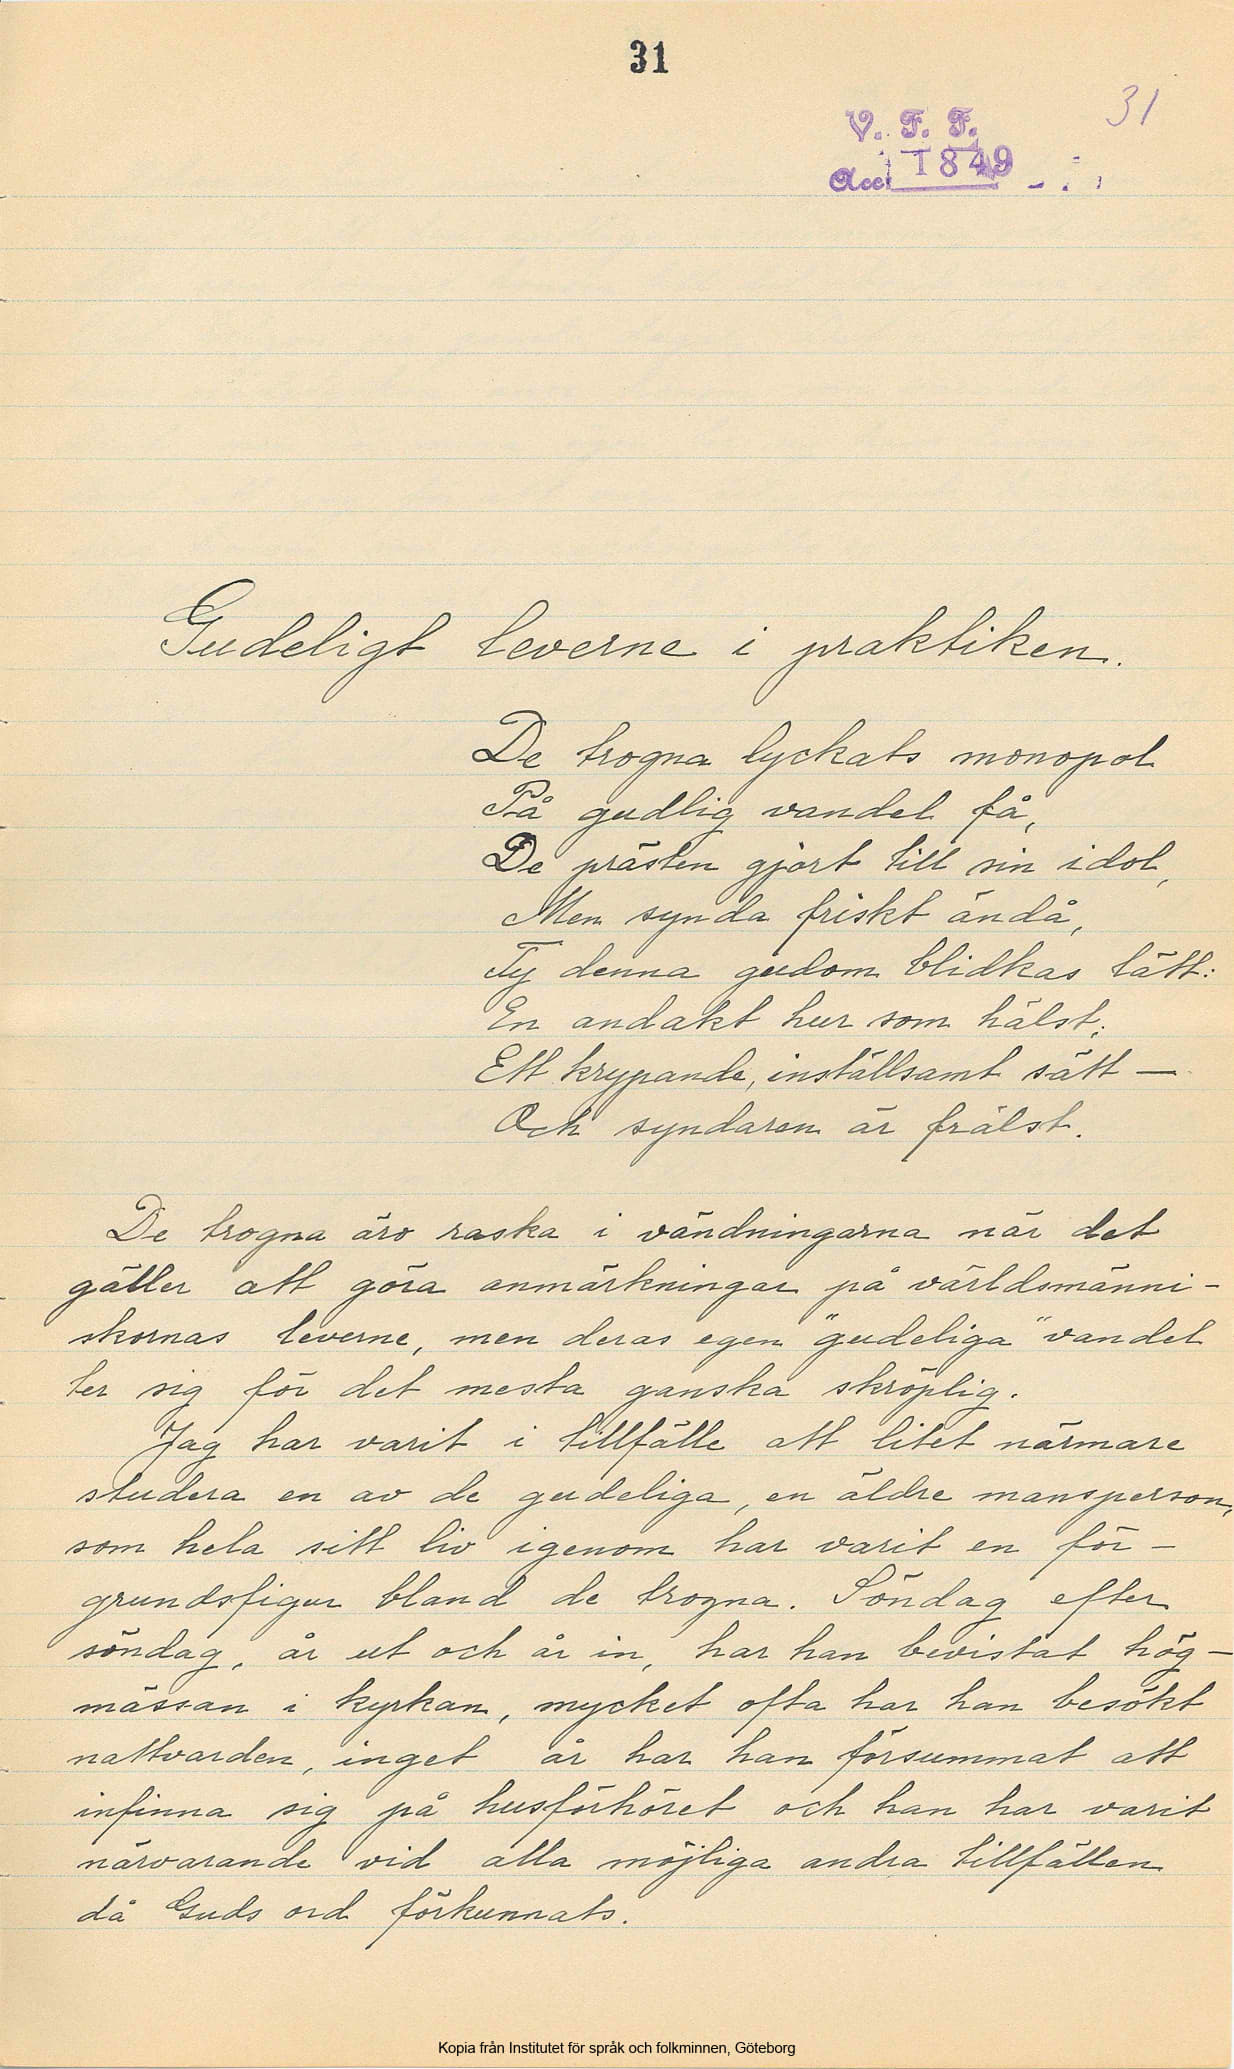 31
31
V. F. F.
Acc. 1849
Gudeligt leverne i praktiken.
De trogna lyckats monopol
På gudlig vandel få,
De prästen gjort till sin idol,
Men synda friskt ändå,
Ty denna gudom blidkas lätt:
En andakt hur som hälst,
Ett krypande, inställsamt sätt —
Och syndaren är frälst.
De trogna äro raska i vändningarna när det
gäller att göra anmärkningar på världsmänni-
skornas leverne, men deras egen "gudeliga" vandel
ter sig för det mesta ganska skröplig.
Jag har varit i tillfälle att litet närmare
studera en av de gudeliga, en äldre mansperson,
som hela sitt liv igenom har varit en för-
grundsfigur bland de trogna. Söndag efter
söndag, år ut och år in, har han bevistat hög-
mässan i kyrkan, mycket ofta har han besökt
nattvarden, inget år har han försummat att
infinna sig på husförhöret och han har varit
närvarande vid alla möjliga andra tillfällen
då Guds ord förkunnats.
Kopia från Institutet för språk och folkminnen, Göteborg